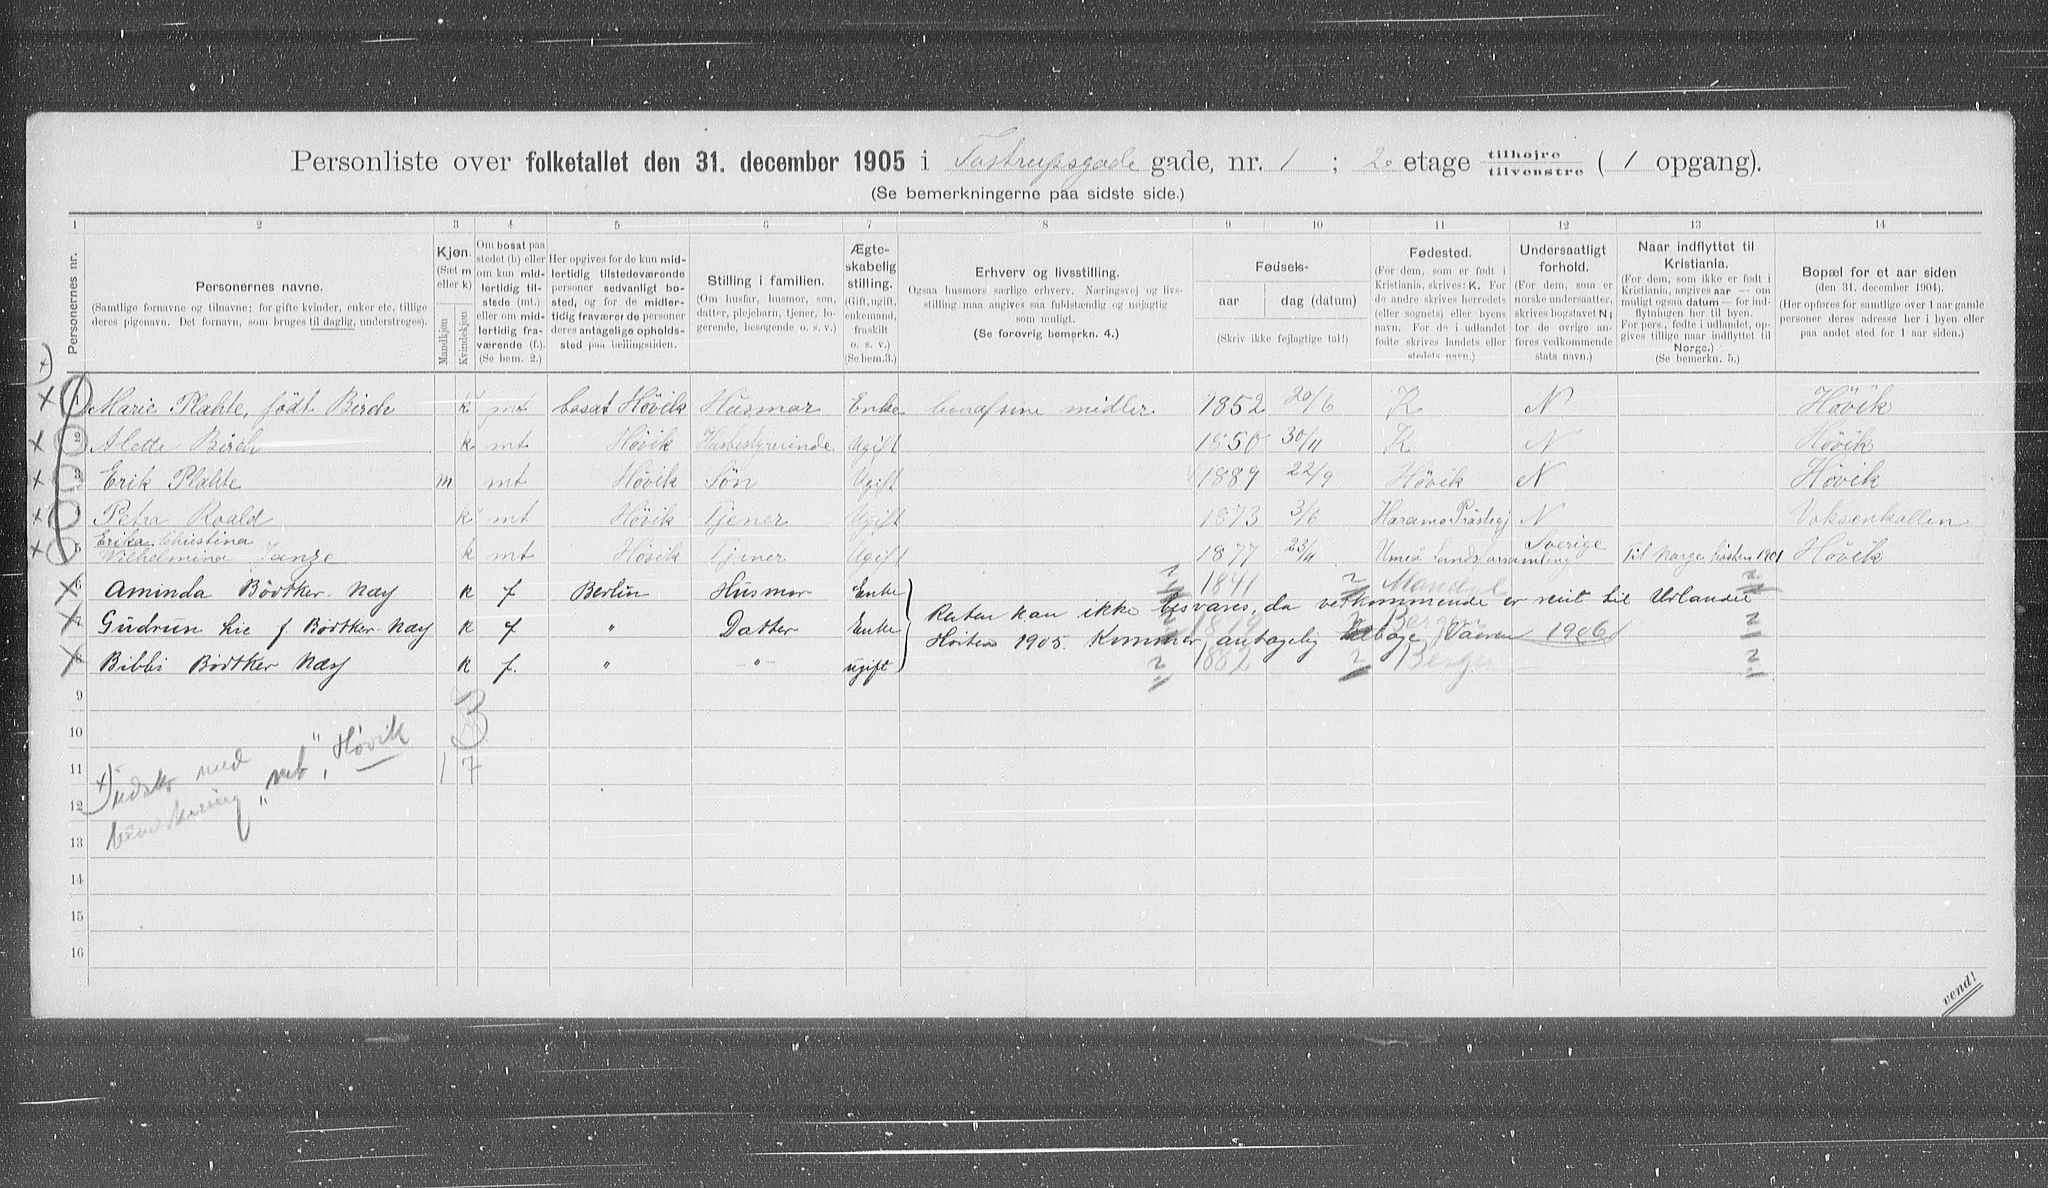 Personliste over folketallet den 31. december 1905 i Tostrupsgade gade, nr. 1 ; 2. etage tilhøjre tilvenstre ( 1 opgang).
(Se bemerkningerne paa sidste side.)
1 2 3 4 5 6 7 8 9 10 11 12 13 14
Personernes nr.
Personernes navne.
(Samtlige fornavne og tilnavne; for gifte kvinder, enker etc. tillige deres pigenavn. Det fornavn, som bruges til daglig, understreges).
Kjøn.
(Sæt m eller k)
Mandkjøn
Kvindekjøn
Om bosat paa stedet (b) eller om kun midlertidig tilstede (mt.) eller om midlertidig fraværende (f.). (Se bem. 2.)
Her opgives for de kun midlertidig tilstedeværende personer sedvanligt bosted, og for de midlertidig fraværende personer deres antagelige opholdssted paa tællingstiden.
Stilling i familien.
(Om husfar, husmor, søn, datter, plejebarn, tjener, logerende, besøgende o. s. v.)
Ægteskabelig stilling.
(Gift, ugift, enkemand, fraskilt o. s. v.)
(Se bem.3.)
Erhverv og livsstilling.
Ogsaa husmors særlige erhverv. Næringsvej og livsstilling maa angives saa fuldstændig og nøjagtig som muligt.
(Se forøvrig bemerkn. 4.)
Fødsels-
aar dag (datum)
(Skriv ikke fejlagtige tal!)
Fødested.
(For dem, som er født i Kristiania, skrives: K. For de andre skrives herredets (eller sognets) eller byens navn. For de i udlandet fødte skrives landets eller stedets navn.)
Undersaatligt forhold.
(For dem, som er norske undersaatter, skrives bogstavet N; for de øvrige anføres vedkommende stats navn.)
Naar indflyttet til Kristiania.
(For dem, som ikke er født i Kristiania, angives aar — om muligt ogsaa datum — for indflytningen her til byen. For pers., født i udlandet, opgives tillige naar indflyttet til Norge.)
(Se bemerkn. 5.)
Bopæl for et aar siden
(den 31. december 1904).
(Her opføres for samtlige over 1 aar gamle personer deres adresse her i byen eller paa andet sted for 1 aar siden.)
1 Marie Plahte, født Birch k mt bosat Høvik Husmor Enke lever af sine midler. 1852 20/6 K N Høvik
2 Alette Birch k mt Høvik Husbestyrerinde Ugift 1850 30/11 K N Høvik
3 Erik Plahte m mt Høvik Søn Ugift 1889 22/9 Høvik N Høvik
Petra Roald k mt Høvik Tjener Ugift 1873 3/6 Haramo Præstegj N Voksenkollen
Erika Christina
5 Vilhelmina Janze k mt Høvik Tjener Ugift 1877 23/11 Umeå landsforsamling Sverige Til Norge høsten 1901 Høvik
6 Aminda Bödtker-Næy k f Berlin Husmor Enke 1841 Mandal
7 Gudrun Lie f. Bödtker-Næy k f " Datter Enke Bergen
Resten kan ikke besvares, da vedkommende er reist til Udlandet
Høsten 1905. Kommer antagelig tilbage Vaaren 1906
8 Bibbi Bödtker Næy k f. " —"— ugift 1882 Bergen
9
10
11
12
13
14
15
16
3
1 7
x) Udsk. med
bemerkning „mt", Høvik
vend!